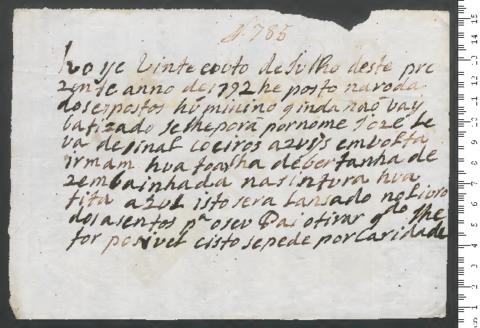 nº 785
hoye Vinte eouto de Julho deste pre
zente anno de 1792 he posto naroda
dosespostos hũ minino q indanaõ vay
batizado selheporá pornome Jozé Le
va desinal coeiros azuis emvolta
irmam hua toalha debertanha de
zembainhada nasintura hua
fita azul isto sera Lansado no Livro
dosasentos pª oseu Pai otirar qdo lhe
for posivel eisto sepede porCaridade